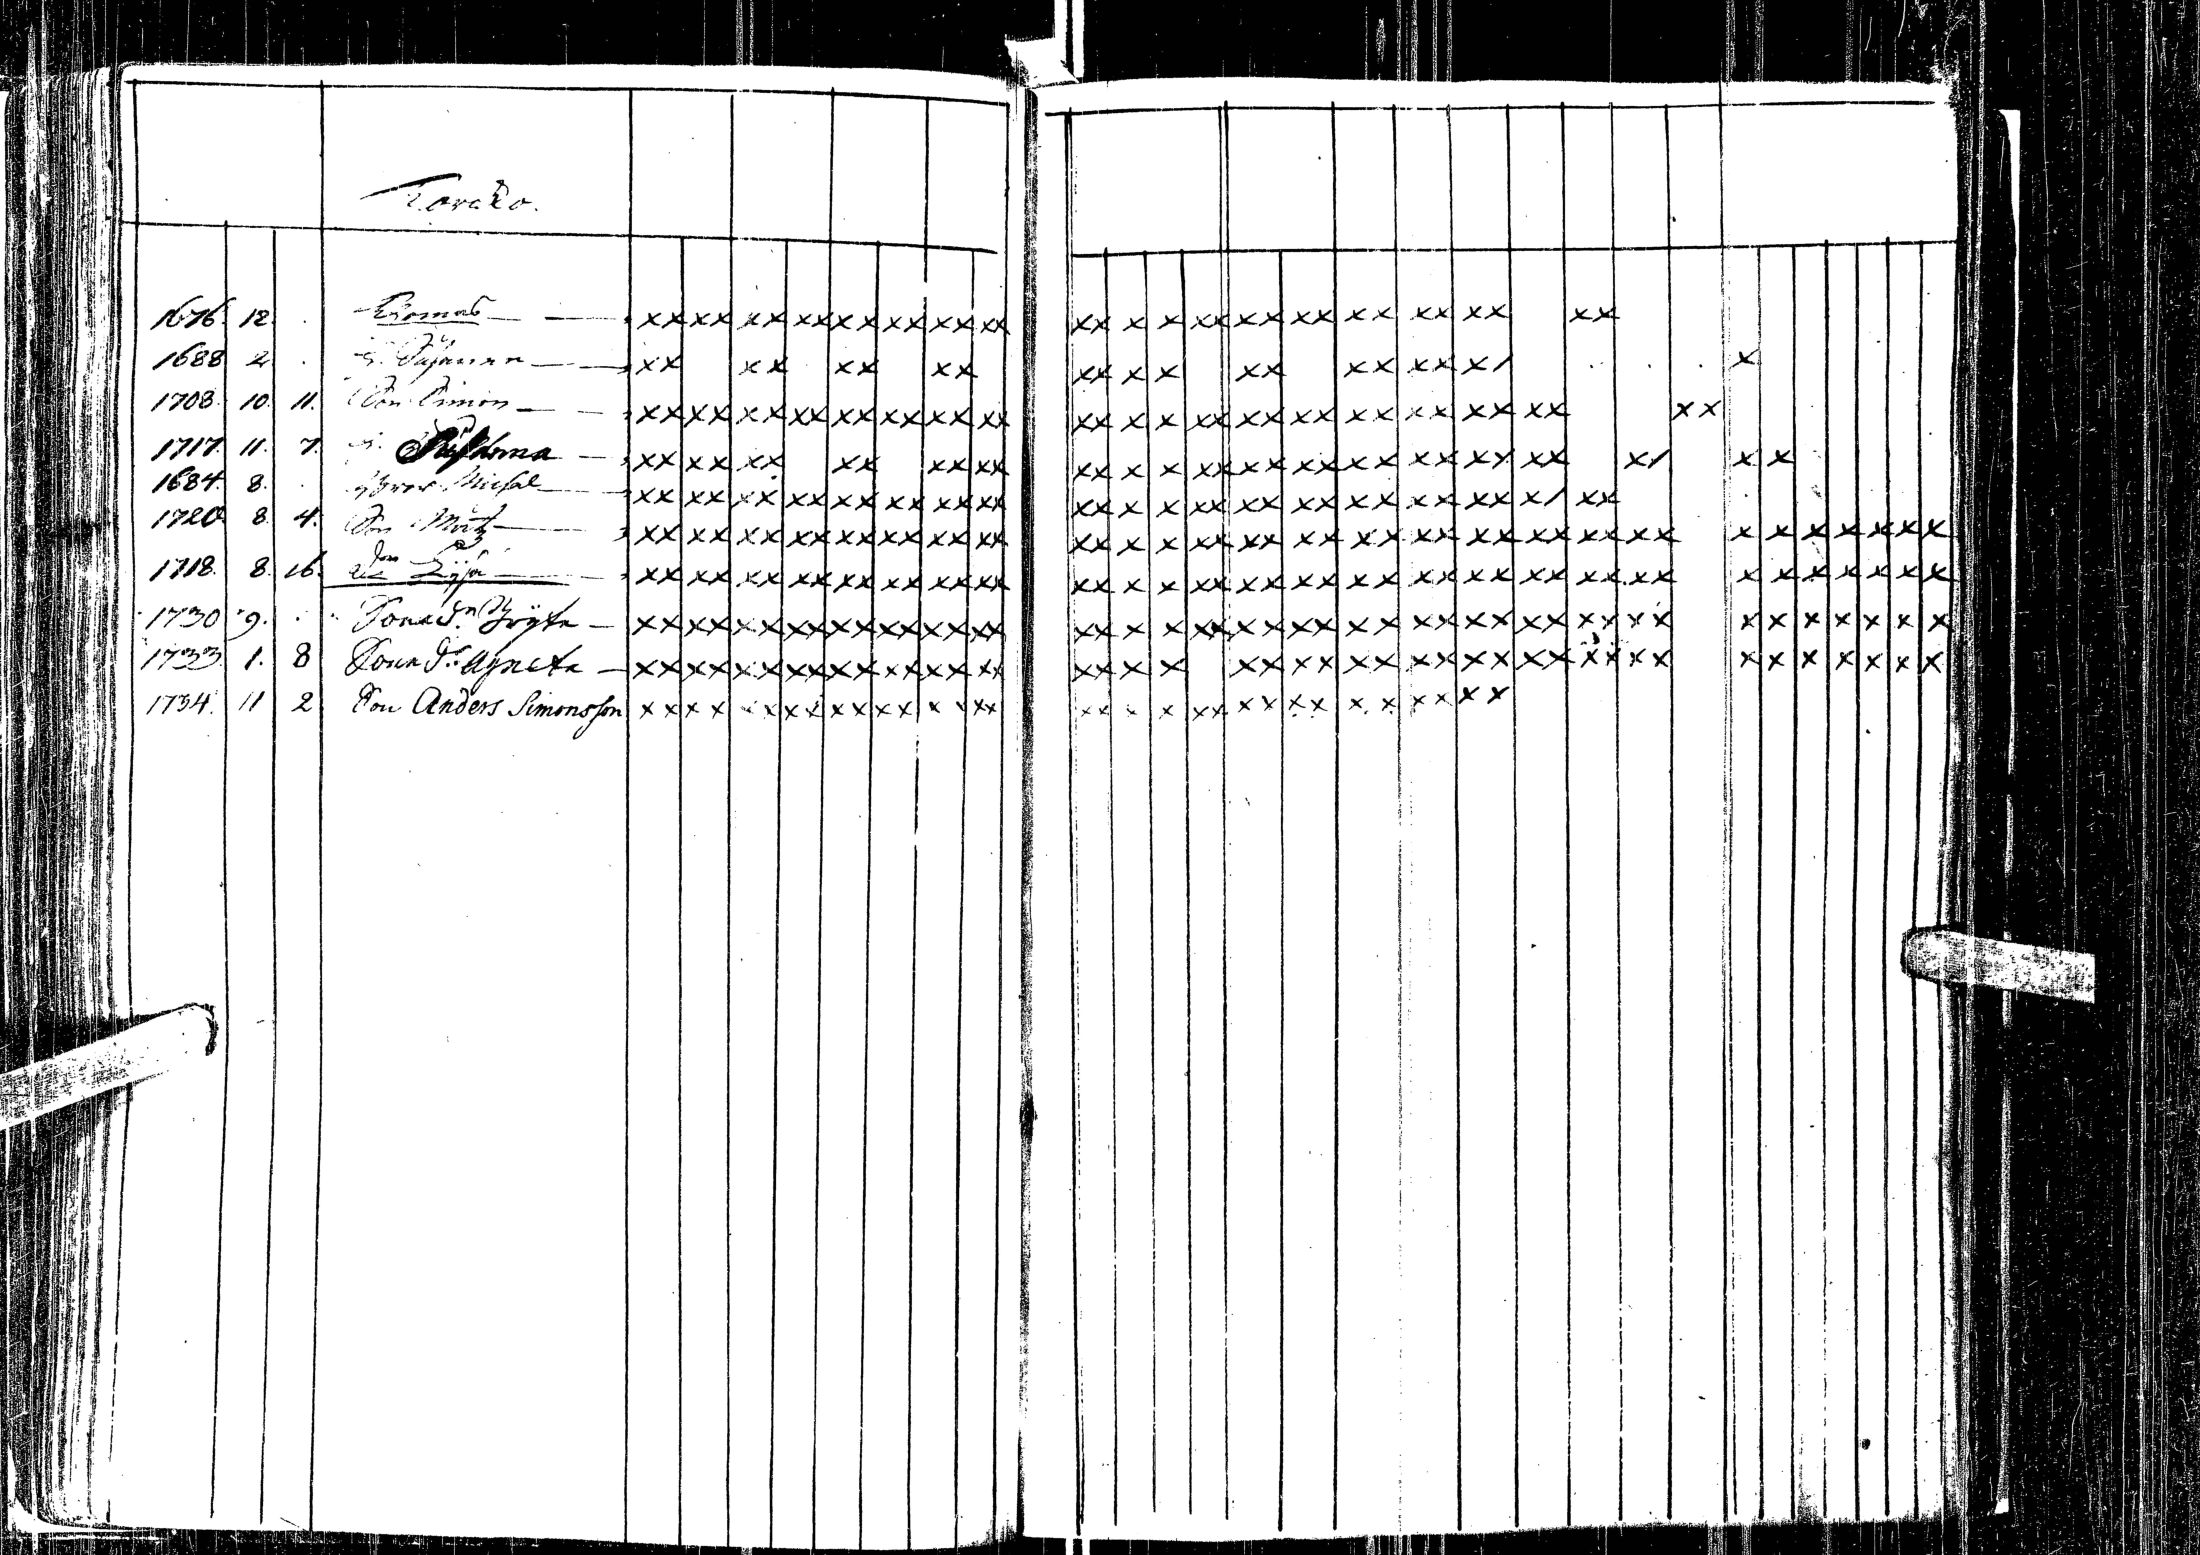 Torcko.
1676. 12. Thomas xx xx xx xx xx xx xx xx xx x x xx xx xx xx xx xx xx
1688 2. H. Susanna xx xx xx xx xx x x xx xx xx x/ x
1708. 10. 11. Son Simon xx xx xx xx xx xx xx xx xx x x xx xx xx xx xx xx xx xx
1717. 11. 7. H. xx xx xx xx xx xx xx x x xx xx xx xx xx x/ xx x/ x x
1684. 8. Bror Michel xx xx xx xx xx xx xx xx xx x x xx xx xx xx xx xx x/ xx
1720. 8. 4. Son Matz xx xx xx xx xx xx xx xx xx x x xx xx xx xx xx xx xx xx xx x x x x x x x
1718. 8. 16. Lijsa xx xx xx xx xx xx xx xx xx x x xx xx xx xx xx xx xx xx xx x x x x x x x
1730 9. Sona dr. Bryta xx xx xx xx xx xx xx xx xx x x xx xx xx xx xx xx xx xx xx x x x x x x x
1733 1. 8 Sona dr. Agneta xx xx xx xx xx xx xx xx xx x x xx xx xx xx xx xx xx xx x x x x x x x
1734. 11 2 Son Anders Simonsson xx xx xx xx xx xx xx xx xx x x xx xx xx xx xx xx